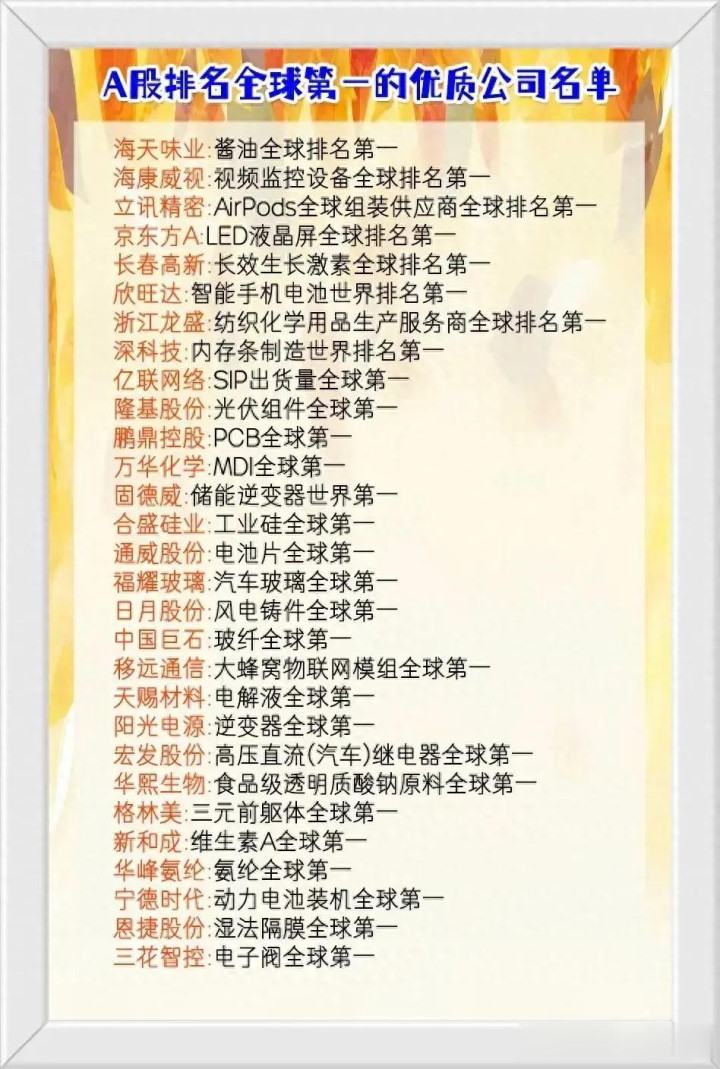 A股排名全球第一的优质公司名单
海天味业:酱油全球排名第一
海康威视:视频监控设备全球排名第一
立讯精密:AirPods全球组装供应商全球排名第一
京东方A:LED液晶屏全球排名第一
长春高新:长效生长激素全球排名第一
欣旺达:智能手机电池世界排名第一
浙江龙盛:纺织化学用品生产服务商全球排名第一
深科技:内存条制造世界排名第一
亿联网络:SIP出货量全球第一
隆基股份:光伏组件全球第一
鹏鼎控股:PCB全球第一
万华化学:MDI全球第一
固德威:储能逆变器世界第一
合盛硅业:工业硅全球第一
通威股份:电池片全球第一
福耀玻璃:汽车玻璃全球第一
日月股份:风电铸件全球第一
中国巨石:玻纤全球第一
移远通信:大蜂窝物联网模组全球第一
天赐材料:电解液全球第一
阳光电源:逆变器全球第一
宏发股份:高压直流(汽车)继电器全球第一
华熙生物:食品级透明质酸钠原料全球第一
格林美:三元前躯体全球第一
新和成:维生素A全球第一
华峰氨纶:氨纶全球第一
宁德时代:动力电池装机全球第一
恩捷股份:湿法隔膜全球第一
三花智控:电子阀全球第一